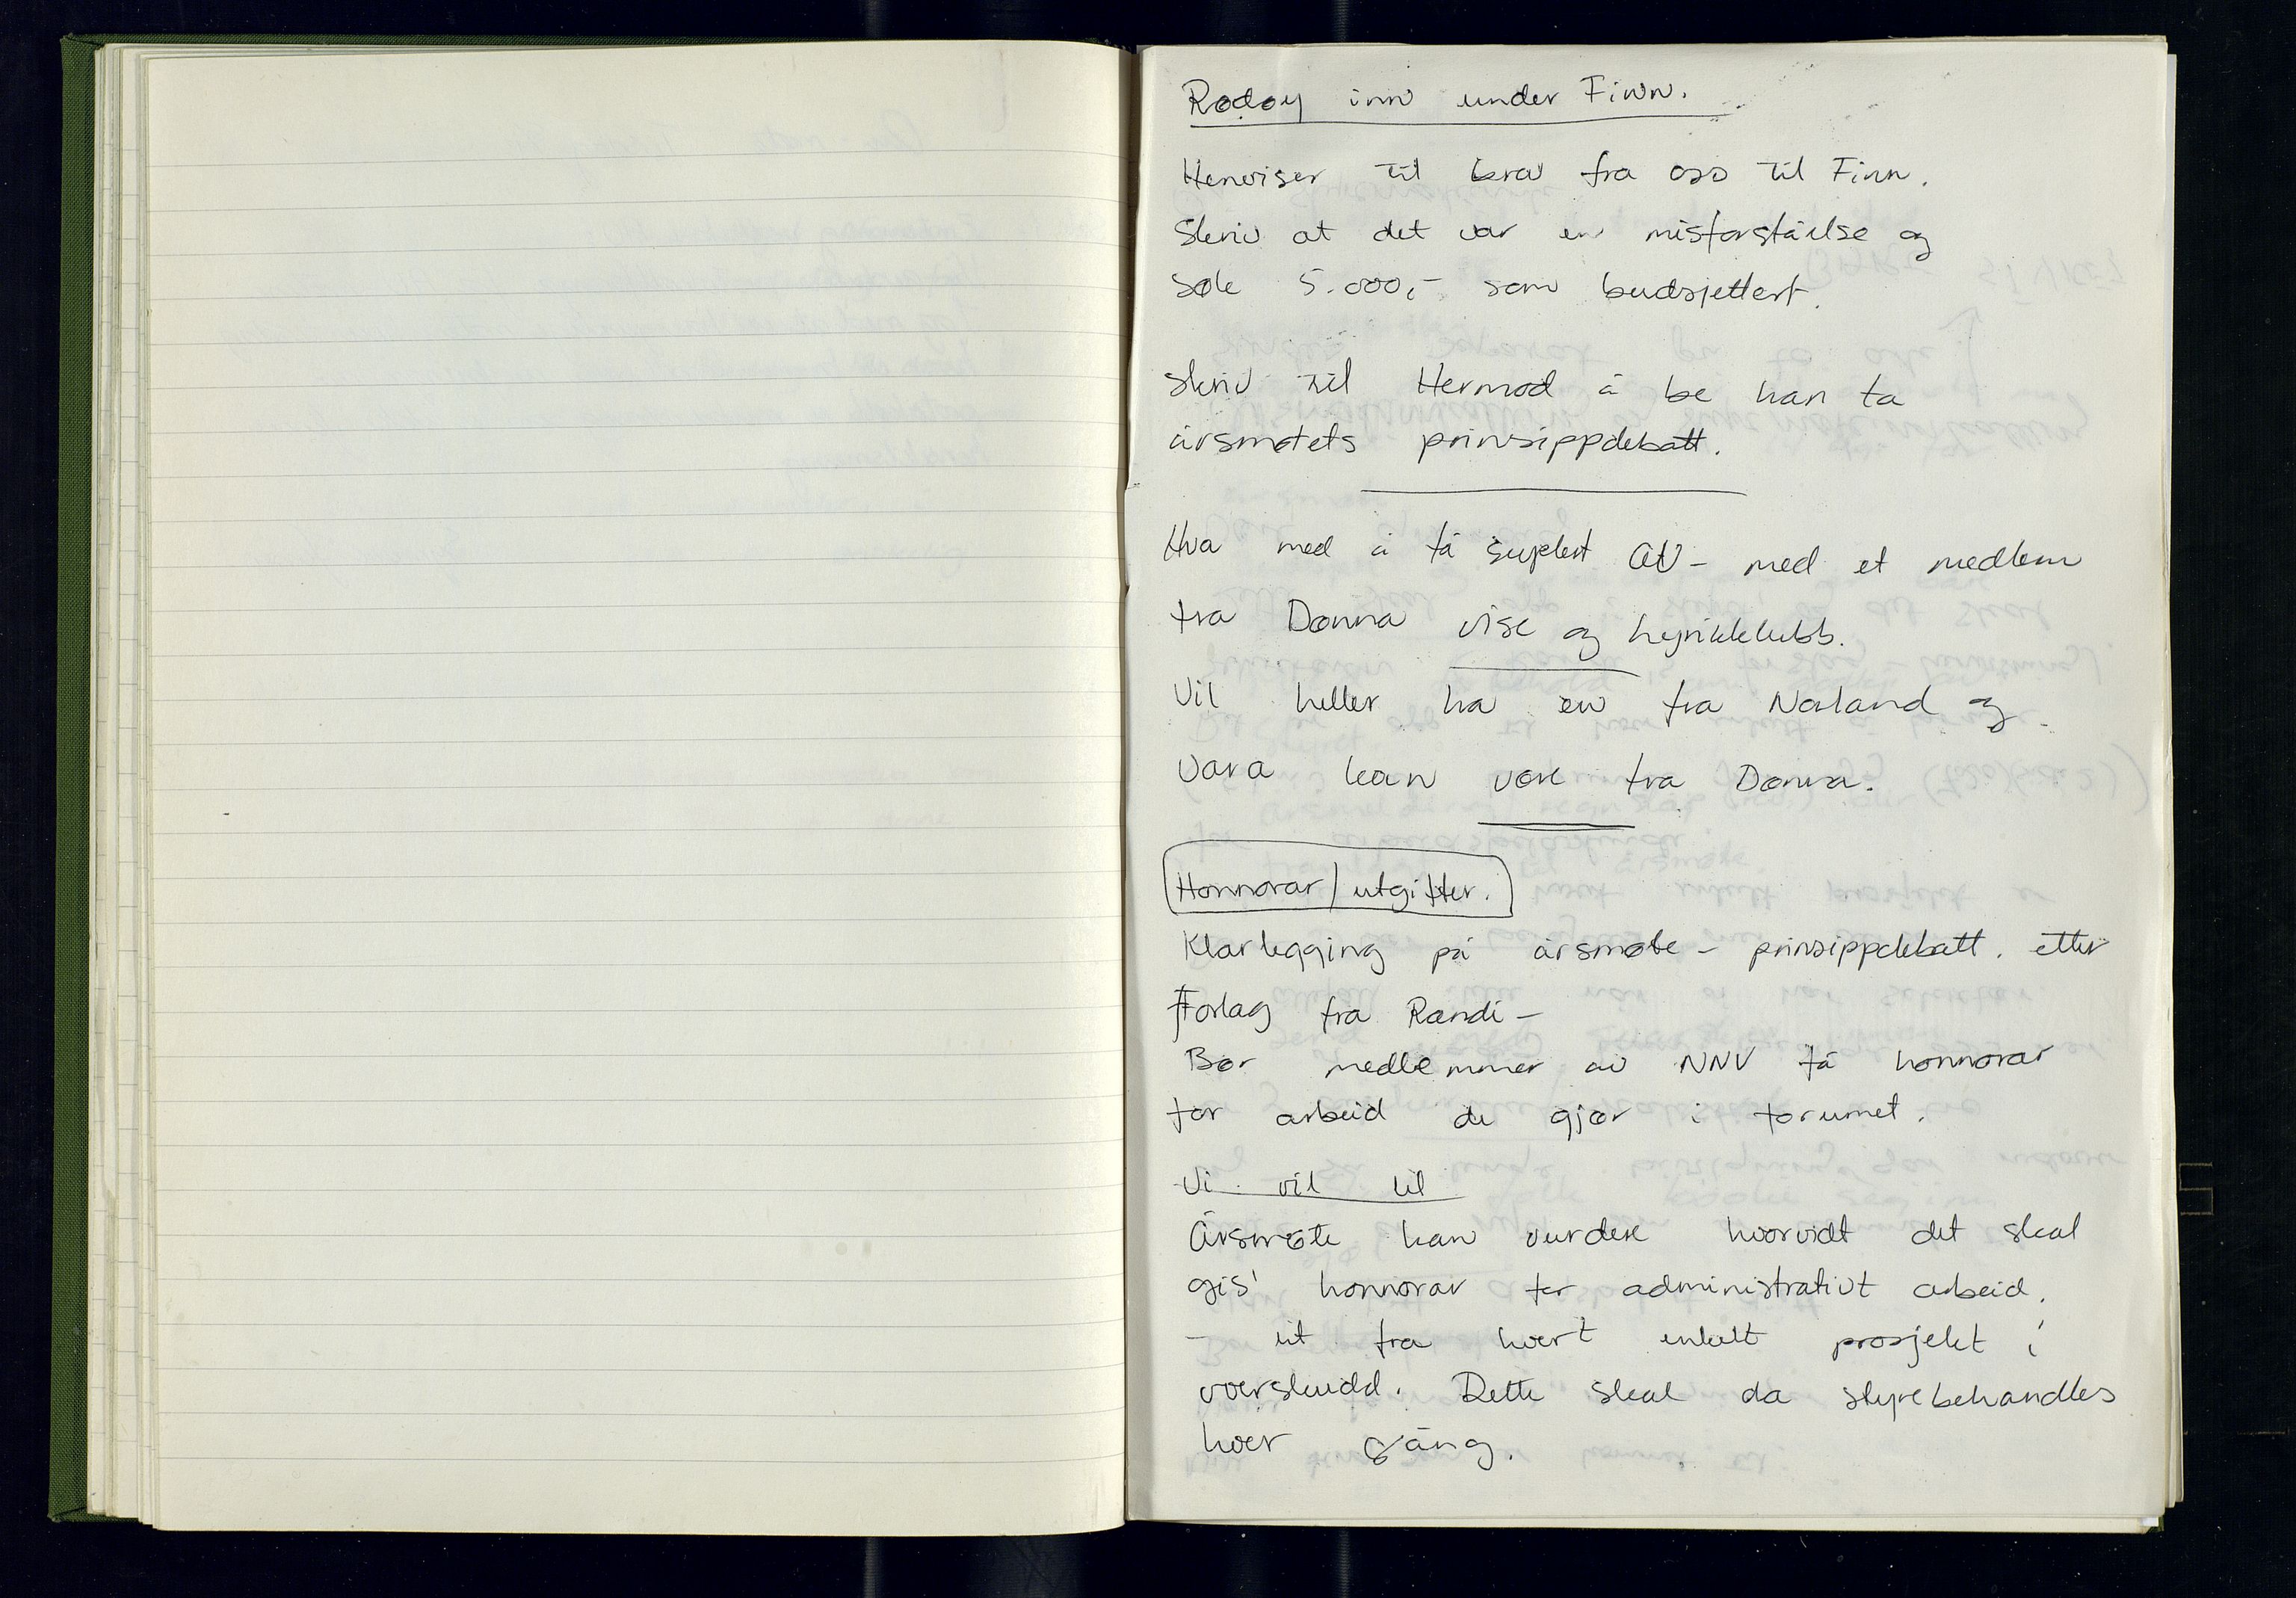 Rødøy inn under Finn.
Henviser til krav fra oss til Finn.
Skriv at det var en misforståelse og
søk 5.000,- som budsjettert.
Skriv til Hermod å be han ta
årsmøtets prinsippdebatt.
Hva med å få suplert AU - med et medlem
fra Dønna vise og lyrikklubb.
Vil heller ha en fra Norland og
vara kan være fra Dønna.
Honnorar/utgifter.
Klarlegging på årsmøte - prinsippdebatt. etter
Forlag fra Randi -
Bør medlemmer av NNV få honnorar
for arbeid de gjør i forumet.
Vi vil til
Årsmøte kan vurdere hvorvidt det skal
gis honnorar for administrativt arbeid.
- ut fra hvert enkelt prosjekt i
overskudd. Dette skal da styrebehandles
hver gång.